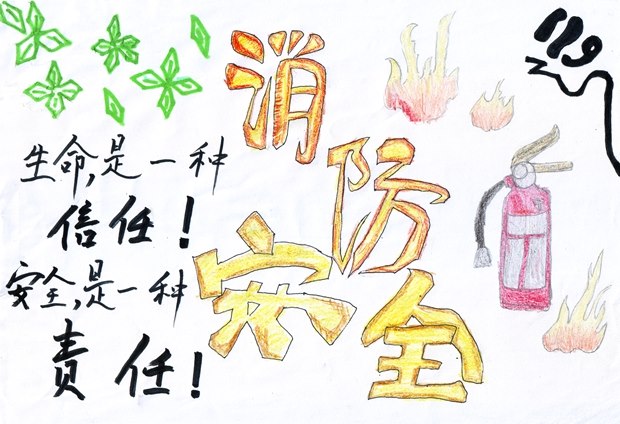 消防安全
119
生命,是一种
信任!
安全,是一种
责任!